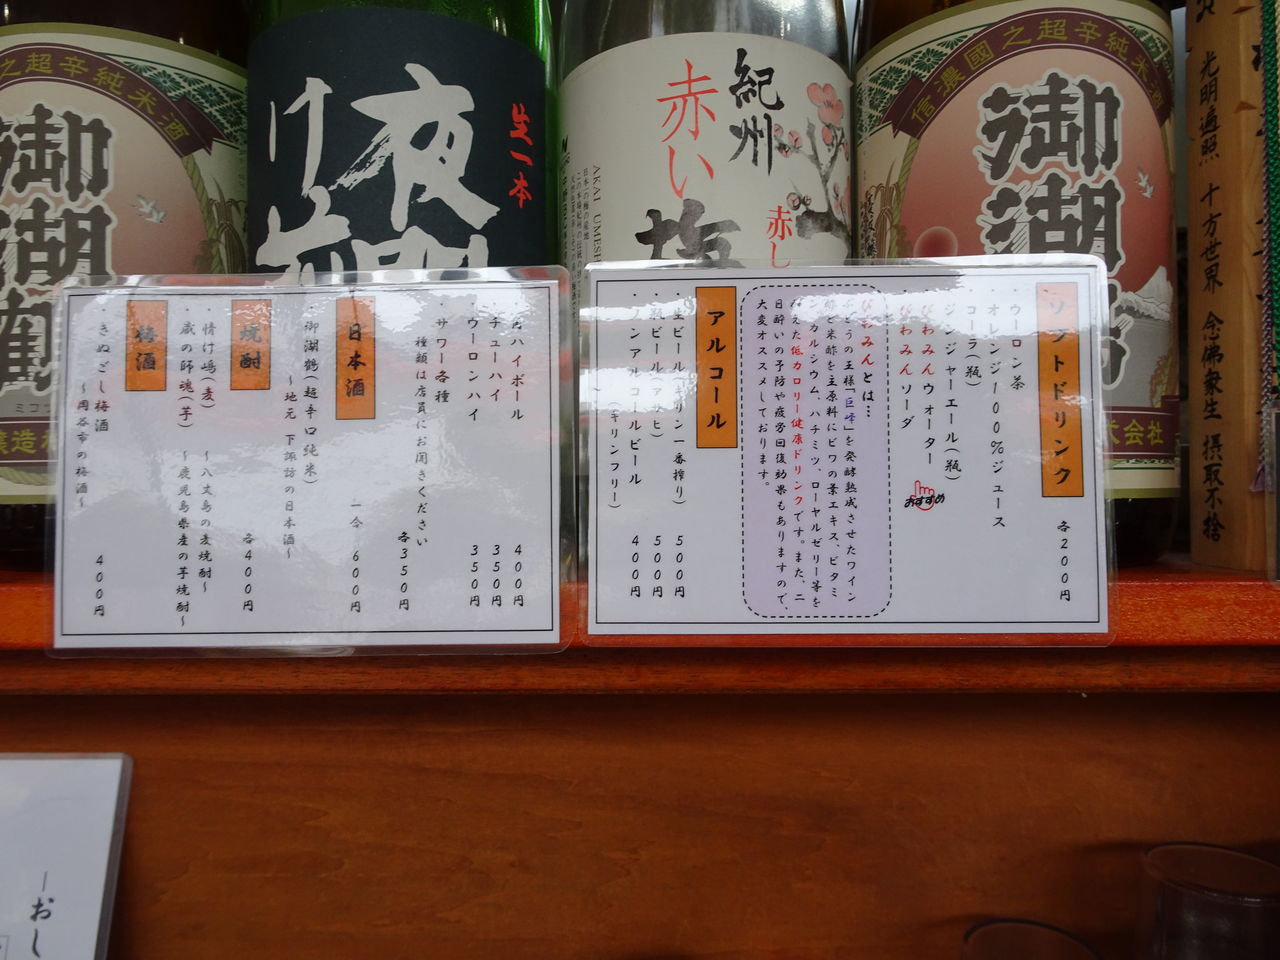 信濃國之超辛純米酒
御湖鶴
紀州
赤い梅
赤し
AKAI UMESH
生一本
夜明け前
之超辛純米酒
御湖鶴
光明遍照 十方世界 念佛衆生 摂取不捨
ソフトドリンク
各200円
・ウーロン茶
オレンジ100%ジュース
コーラ(瓶)
ジンジャーエール(瓶)
びわみんウォーター
びわみんソーダ
おすすめ
びわみんとは…
ぶどうの王様「巨峰」を発酵熟成させたワイン
酢と米酢を主原料にビワの葉エキス、ビタミ
ン、カルシウム、ハチミツ、ローヤルゼリー等を
加えた低カロリー健康ドリンクです。また、二
日酔いの予防や疲労回復効果もありますので、
大変オススメしております。
アルコール
・生ビール(キリン一番搾り) 500円
・瓶ビール(アサヒ) 500円
・ノンアルコールビール 400円
(キリンフリー)
ハイボール 400円
チューハイ 350円
ウーロンハイ 350円
サワー各種
種類は店員にお聞きください
各350円
日本酒
一合 600円
御湖鶴(超辛口純米)
~地元 下諏訪の日本酒~
焼酎
各400円
・情け嶋(麦) ~八丈島の麦焼酎~
・蔵の師魂(芋) ~鹿児島県産の芋焼酎~
梅酒
・きぬごし梅酒 400円
~岡谷市の梅酒~
おし